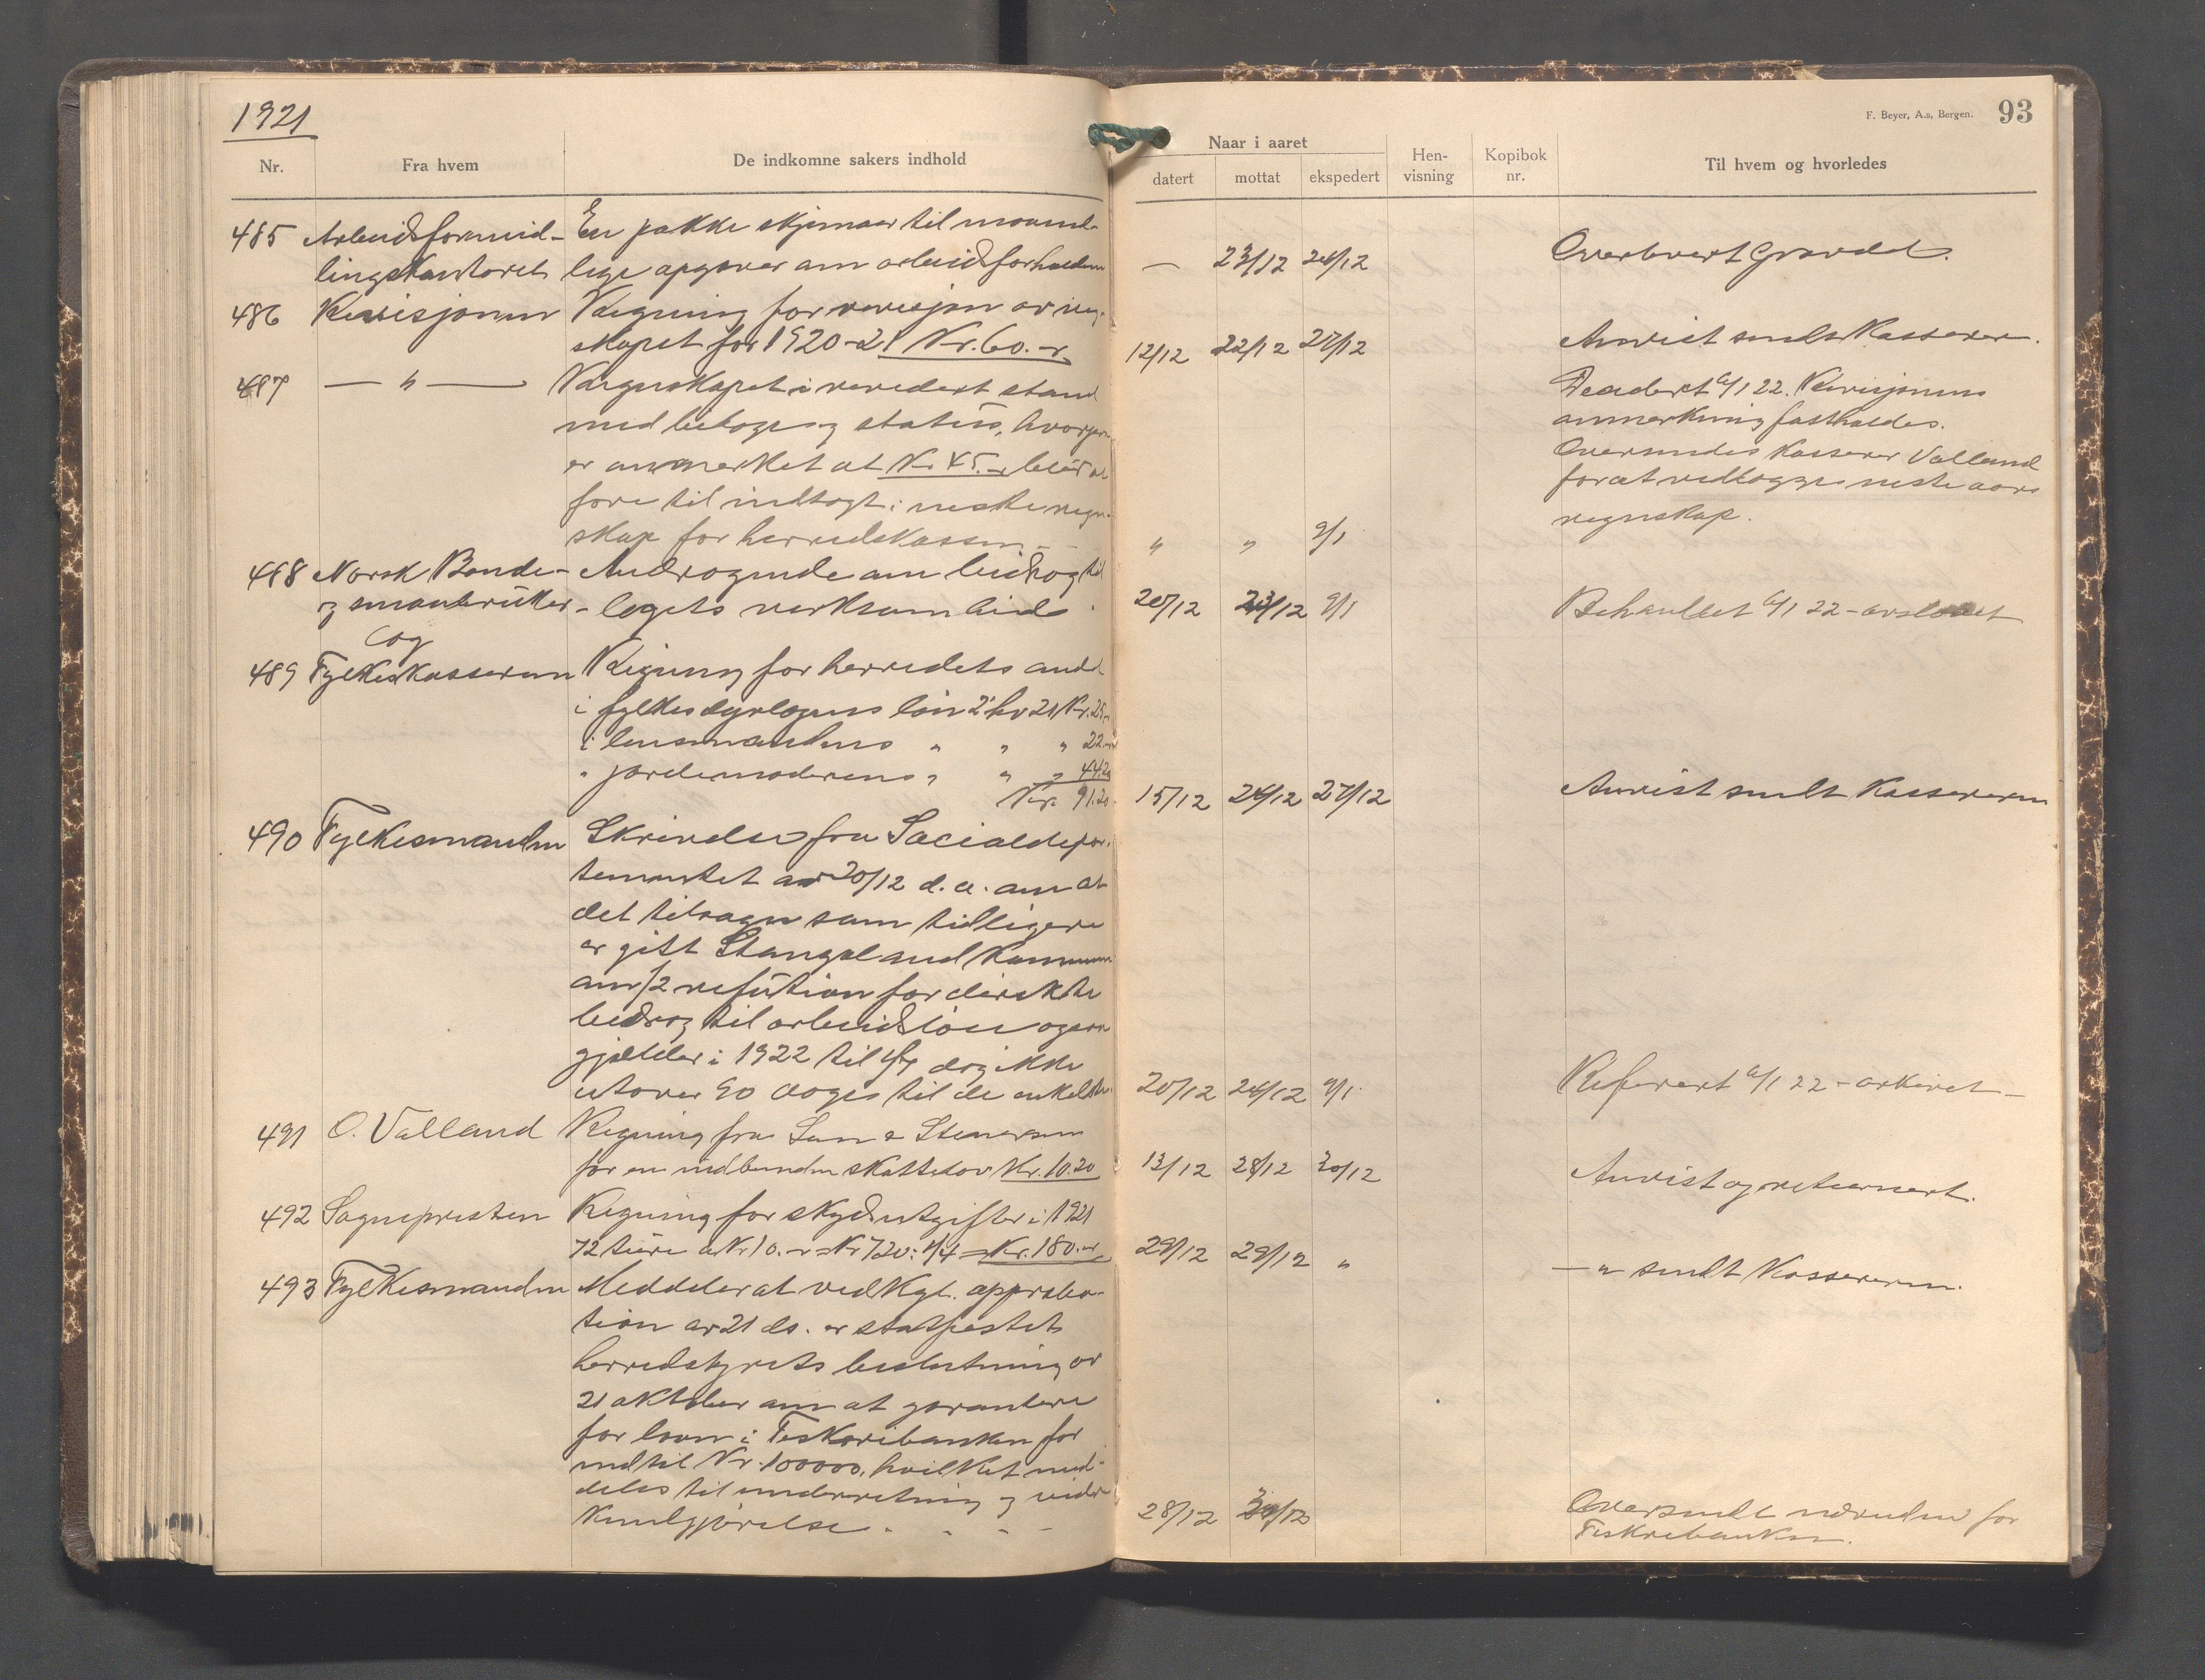 1921
Nr.
Fra hvem
De indkomne sakers indhold
485 Arbeidsformid- En pakke skjemaer til maaned-
lingskontoret lige opgaver om arbeidsforholdene
486 Revisjonen Regning for revisjon av reg-
skapet for 1920-21 Kr. 60.-
487 — " — Regnskapet i revidert stand
med bilager og status, hvorpaa
er anmerket at Kr 45.- blir at
føre til indtægt i neste regn-
skap for herredskassen
488 Norsk Bonde- Andragende om bidrag til
og smaabruker- lagets verksomhed
lag
489 Fylkeskasseren Regning for herredets andel
i fylkesdyrlægens løn 2 hv 21 Kr. 25.-
i lensmandens " " " 22.-
" jordemoderens " " " 44.20
Kr. 91.20
490 Fylkesmanden Skrivelse fra Socialdepar-
tementet av 20/12 d.a. om at
det tilsagn som tidligere
er gitt Stangeland kommune
om 1/2 refution for direkte
bidrag til arbeidsløse ogsaa
gjælder i 1922 til dog ikke
utover 90 dages til de enkelte
491 O. Valland Regning fra Lem & Stenersen
for en indbunden skattelov Kr. 10.20
492 Sognepresten Regning for skydsutgifter i 1921
72 ture a Kr 10.- = Kr 720: 1/4 = Kr. 180.-
493 Fylkesmanden Meddeler at ved Kgl. approba-
tion av 21 ds. er statfestet
herredstyrets beslutning av
21 oktober om at garantere
for laan i Fiskeribanken for
indtil Kr. 100000, hvilket med-
deles til underretning og videre
kundgjørelse.
F. Beyer, A.s, Bergen. 93
Naar i aaret
datert
mottat
ekspedert
Hen-
visning
Kopibok
nr.
Til hvem og hvorledes
— 23/12 24/12 Overlevert Grødel.
12/12 22/12 27/12 Anvist sendt Kasseren.
22. Revisjonens
anmerkning fastholdes.
Oversendes Kasserer Valland
forat vedlægges neste aars
regnskap.
" " 9/1
20/12 23/12 9/1 Behandlet 6/1 22 - avslaaet
15/12 24/12 27/12 Anvist sendt Kassereren
20/12 24/12 9/1 Referert 6/1 22 - arkivet -
13/12 28/12 30/12 Anvist og returnert.
29/12 29/12 " — " sendt Kassereren.
28/12 30/12 Oversendt for
Fiskeribanken.